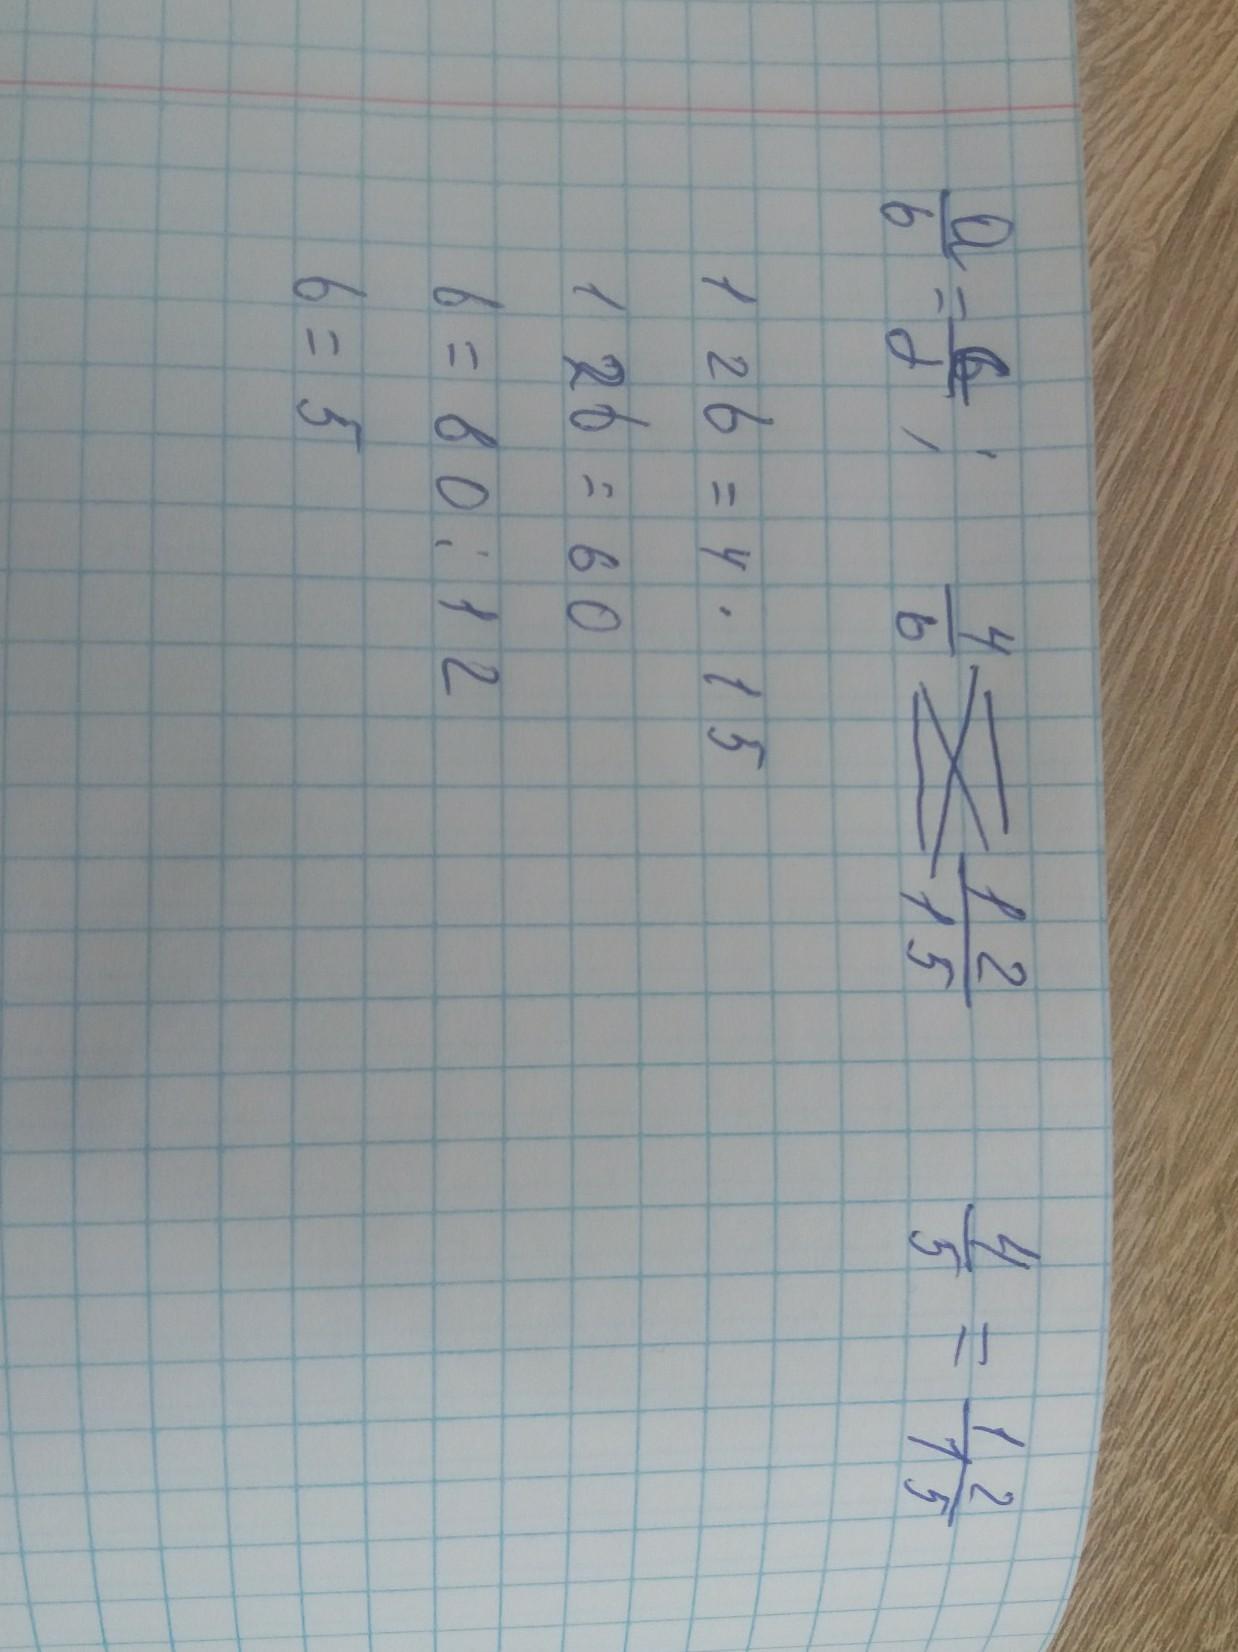 a/b = c/d, 4/b = 12/15 4/5 = 12/15
12b = 4 · 15
12b = 60
b = 60 : 12
b = 5